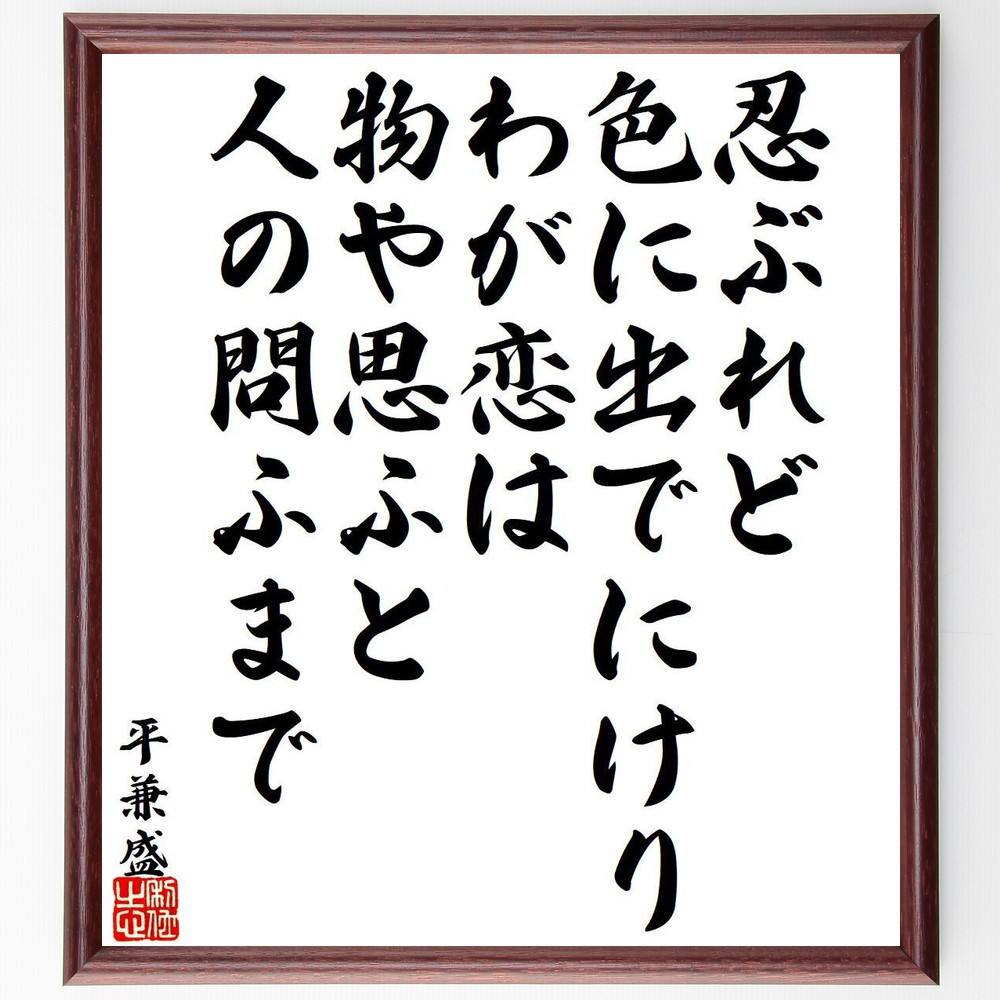 忍ぶれど
色に出でにけり
わが恋は
物や思ふと
人の問ふまで
平兼盛